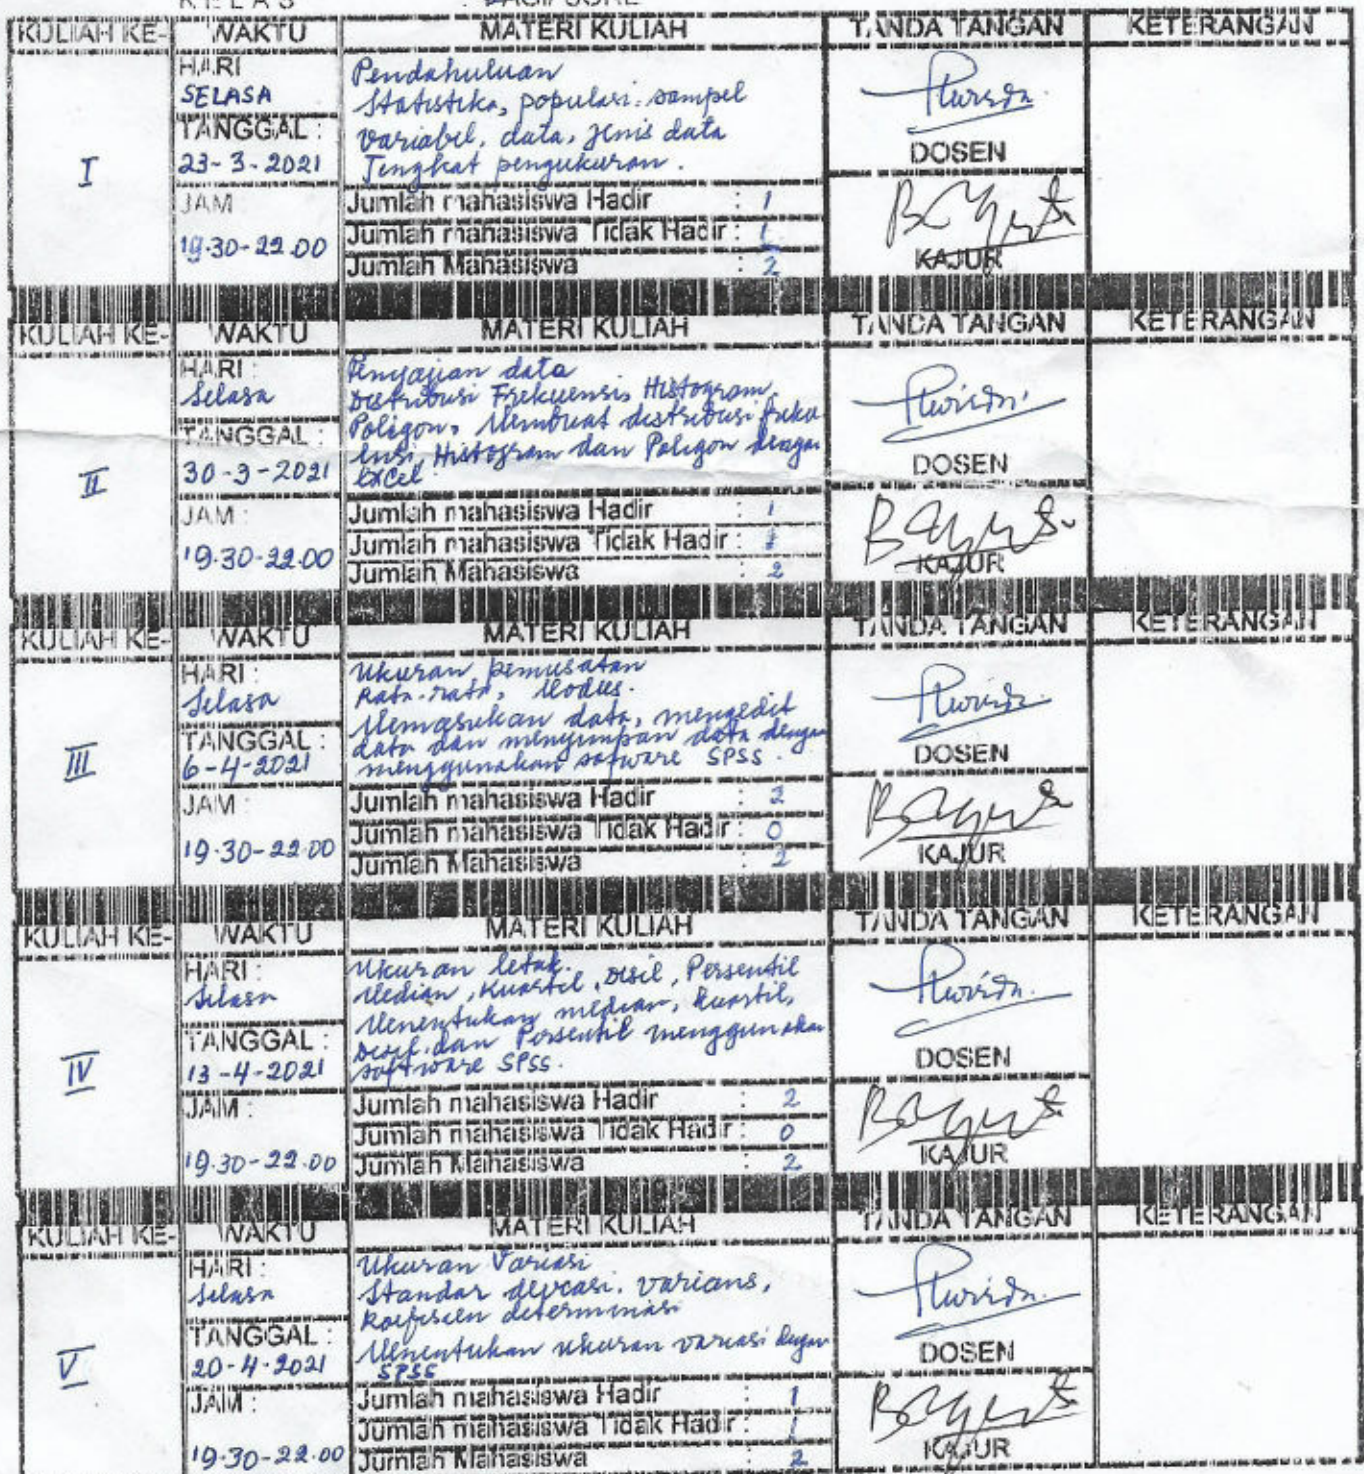 KELAS : PAGI/SORE
KULIAH KE- WAKTU MATERI KULIAH TANDA TANGAN KETERANGAN
I
HARI
SELASA
TANGGAL :
23-3-2021
JAM
19.30-22.00
Pendahuluan
Statistika, populasi, sampel
variabel, data, jenis data
Tingkat pengukuran.
Jumlah mahasiswa Hadir : 1
Jumlah mahasiswa Tidak Hadir : 1
Jumlah Mahasiswa : 2
DOSEN
KAJUR
KULIAH KE- WAKTU MATERI KULIAH TANDA TANGAN KETERANGAN
II
HARI :
Selasa
TANGGAL :
30-3-2021
JAM :
19.30-22.00
Penyajian data
Distribusi Frekuensi, Histogram,
Poligon, Membuat distribusi freku
ensi, Histogram dan Poligon dengan
excel
Jumlah mahasiswa Hadir : 1
Jumlah mahasiswa Tidak Hadir : 1
Jumlah Mahasiswa : 2
DOSEN
KAJUR
KULIAH KE- WAKTU MATERI KULIAH TANDA TANGAN KETERANGAN
III
HARI :
Selasa
TANGGAL :
6-4-2021
JAM :
19.30-22.00
Ukuran pemusatan
Rata-rata, Modus.
Memasukan data, mengedit
data dan menyimpan data dengan
menggunakan sofware SPSS.
Jumlah mahasiswa Hadir : 2
Jumlah mahasiswa Tidak Hadir : 0
Jumlah Mahasiswa : 2
DOSEN
KAJUR
KULIAH KE- WAKTU MATERI KULIAH TANDA TANGAN KETERANGAN
IV
HARI :
Selasa
TANGGAL :
13-4-2021
JAM :
19.30-22.00
Ukuran letak.
Median, Kuartil, Desil, Persentil
Menentukan median, kuartil,
Desil dan Persentil menggunakan
software SPSS.
Jumlah mahasiswa Hadir : 2
Jumlah mahasiswa Tidak Hadir : 0
Jumlah Mahasiswa : 2
DOSEN
KAJUR
KULIAH KE- WAKTU MATERI KULIAH TANDA TANGAN KETERANGAN
V
HARI :
Selasa
TANGGAL :
20-4-2021
JAM :
19.30-22.00
Ukuran Variasi
Standar deviasi, varians,
Koefisien determinasi
Menentukan ukuran variasi dengan
SPSS
Jumlah mahasiswa Hadir : 1
Jumlah mahasiswa Tidak Hadir : 1
Jumlah Mahasiswa : 2
DOSEN
KAJUR